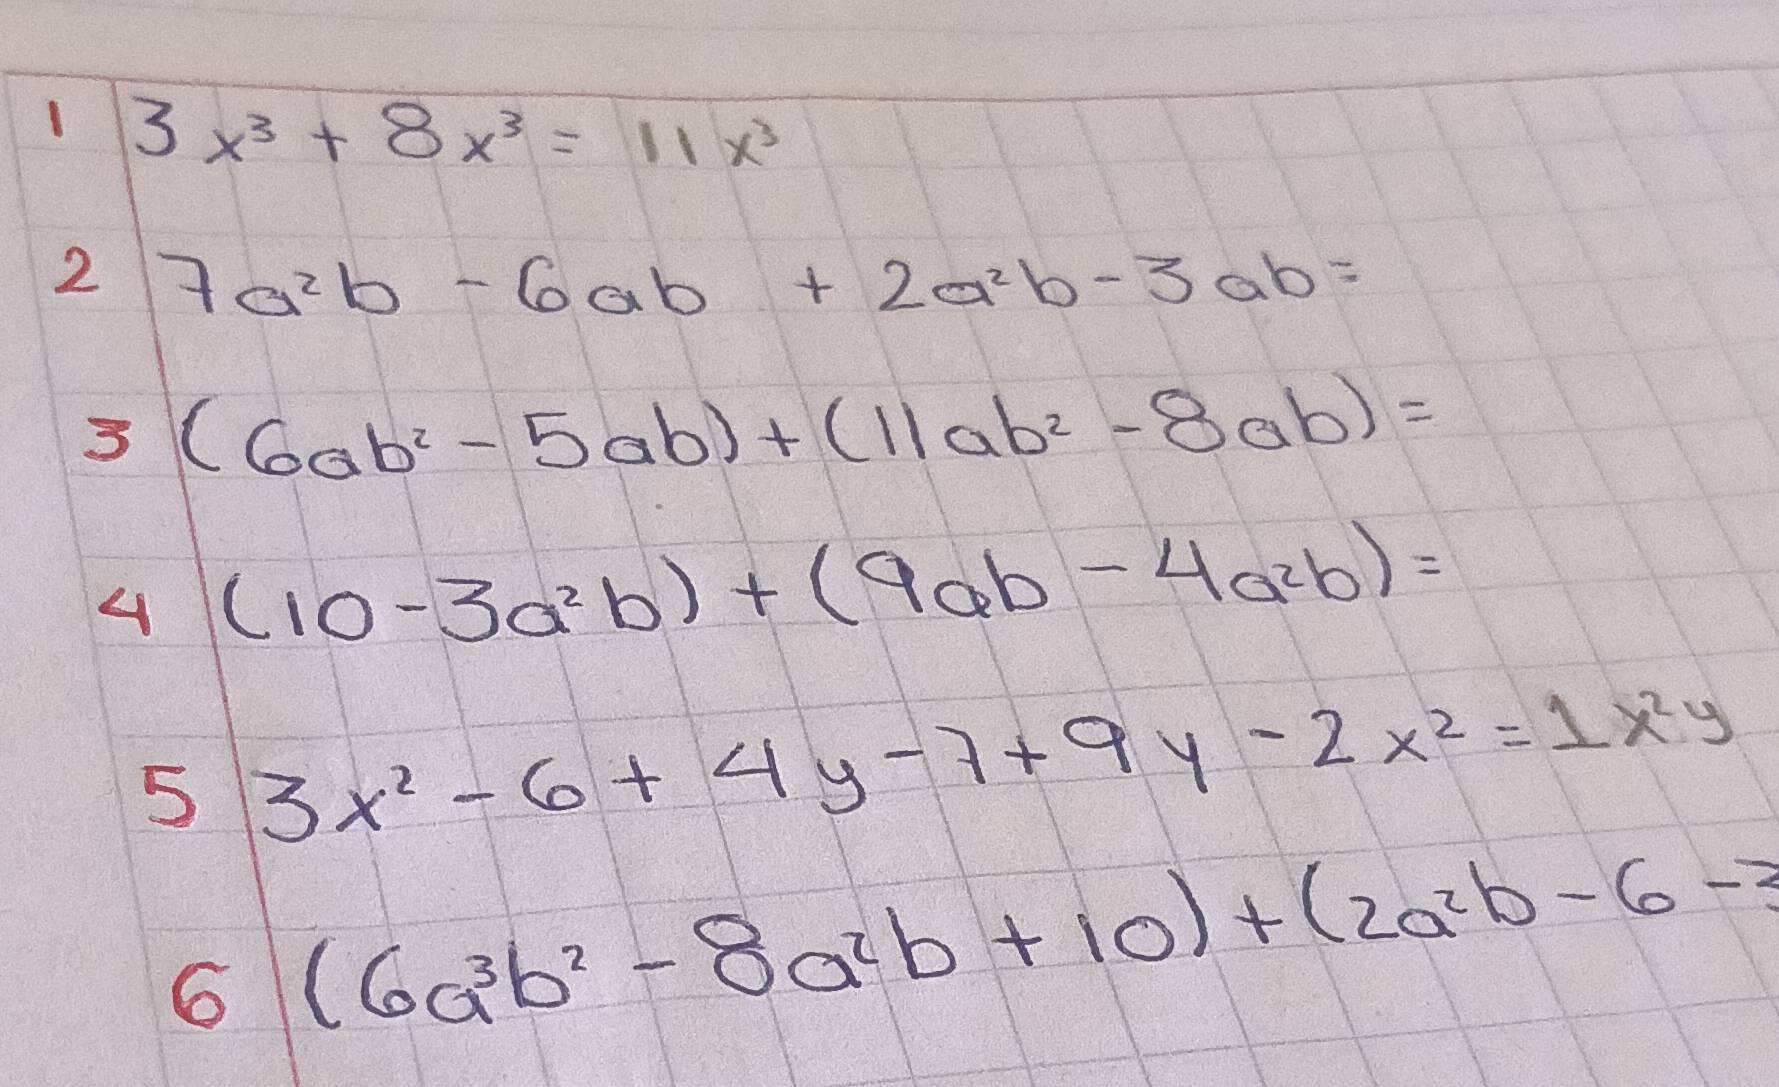 1 3x³ + 8x³ = 11x³
2 7a²b - 6ab + 2a²b - 3ab =
3 (6ab² - 5ab) + (11ab² - 8ab) =
4 (10 - 3a²b) + (9ab - 4a²b) =
5 3x² - 6 + 4y - 7 + 9y - 2x² = 1x²y
6 (6a³b² - 8a²b + 10) + (2a²b - 6 - 3